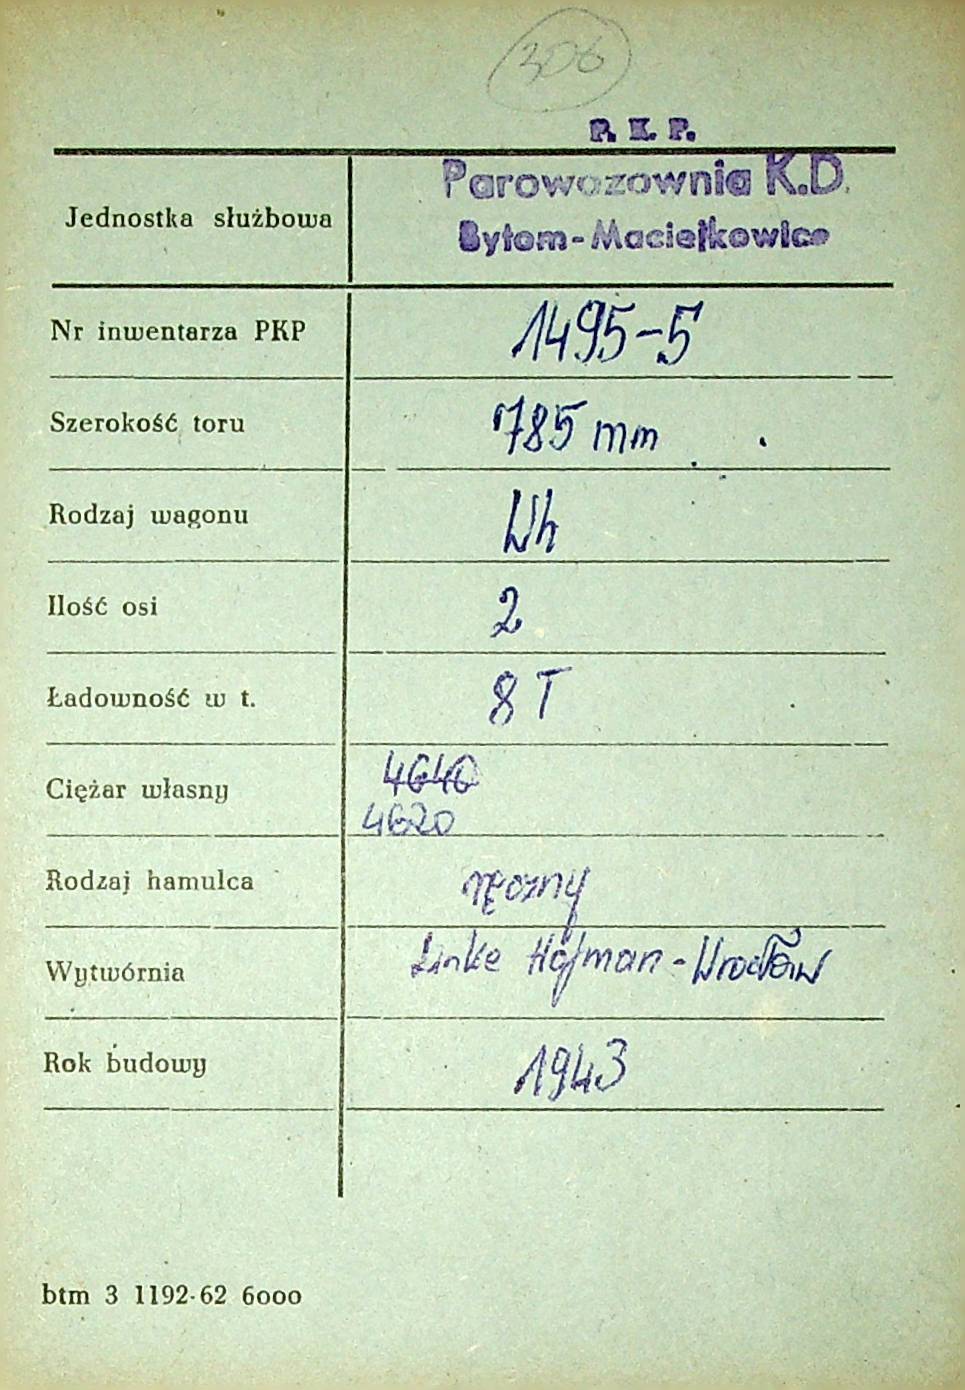 306
P. K. P.
Parowozownia K.D.
Jednostka służbowa
Bytom-Maciejkowice
Nr inwentarza PKP 1495-5
Szerokość toru 785 mm
Rodzaj wagonu Wh
Ilość osi 2
Ładowność w t. 8 T
4640
Ciężar własny
4620
Rodzaj hamulca ręczny
Wytwórnia Linke Hofman - Wrocław
Rok budowy 1943
btm 3 1192-62 6000